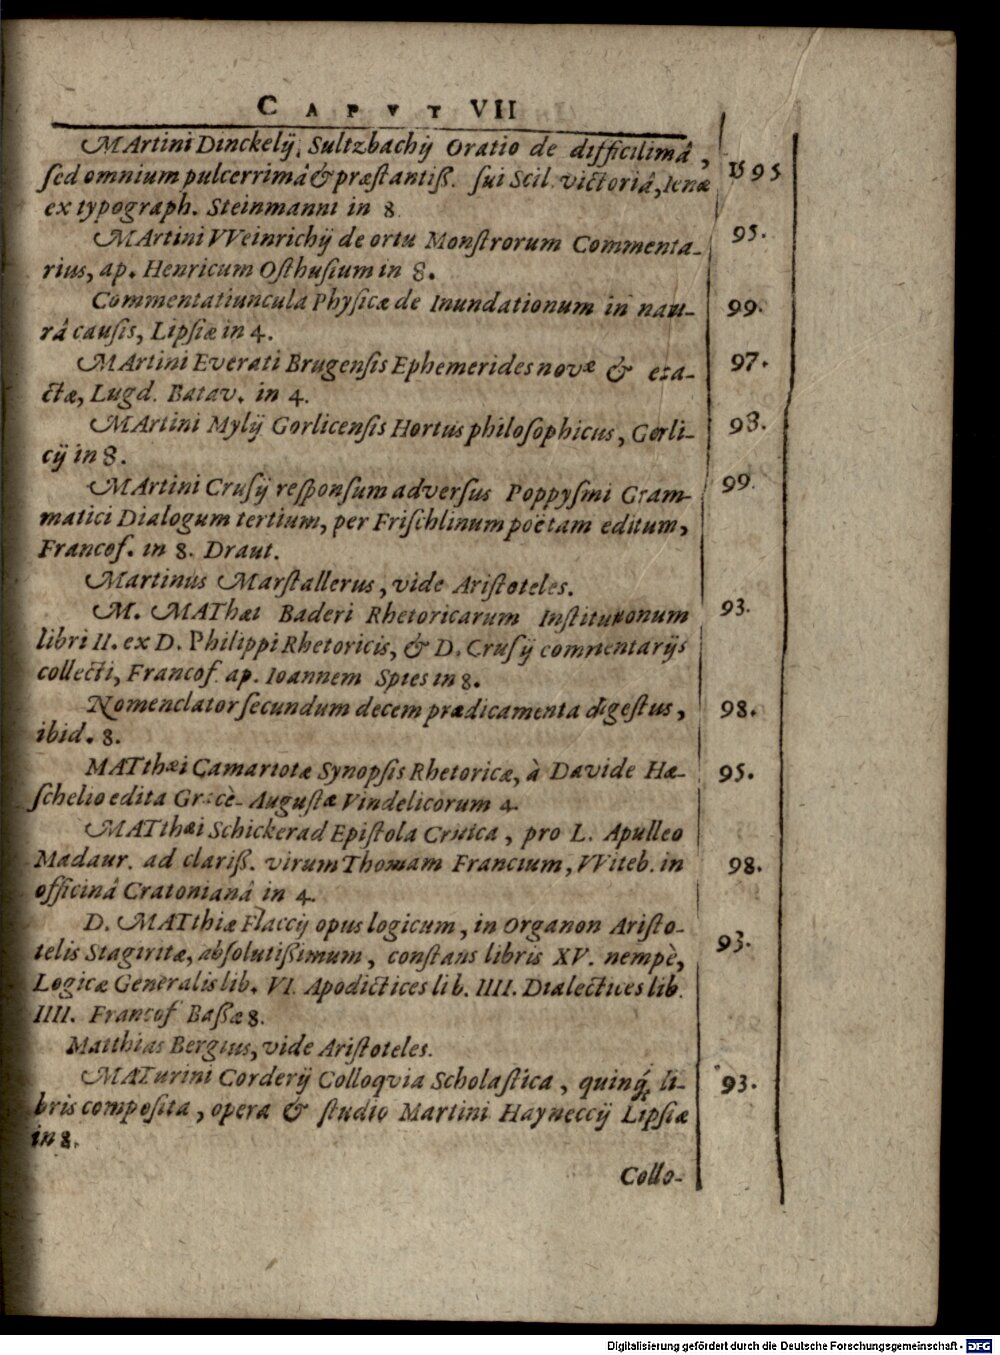 CAPVT VII
MArtini Dinckelij, Sultzbachij Oratio de difficilimâ, 1595
sed omnium pulcerrimâ & præstantiß. sui Scil. victoriâ, Ienæ
ex typograph. Steinmanni in 8
MArtini VVeinrichij de ortu Monstrorum Commenta- 95.
rius, ap. Henricum Osthusium in 8.
Commentatiuncula Physicæ de Inundationum in natu- 99.
râ causis, Lipsiæ in 4.
MArtini Everati Brugensis Ephemerides novæ & exa- 97.
ctæ, Lugd. Batav. in 4.
MArtini Mylij Gorlicensis Hortus philosophicus, Gorli- 98.
cij in 8.
MArtini Crusij responsum adversus Poppysmi Gram- 99.
matici Dialogum tertium, per Frischlinum poëtam editum,
Francof. in 8. Draut.
Martinus Marstallerus, vide Aristoteles.
M. MATthæi Baderi Rhetoricarum Institutionum 93.
libri II. ex D. Philippi Rhetoricis, & D. Crusij commentarijs
collecti, Francof. ap. Ioannem Spies in 8.
Nomenclator secundum decem prædicamenta digestus, 98.
ibid. 8.
MATthæi Camariotæ Synopsis Rhetoricæ, à Davide Hæ- 95.
schelio edita Græcè. Augustæ Vindelicorum 4.
MATthæi Schickerad Epistola Critica, pro L. Apulleo
Madaur. ad clariß. virum Thomam Francium, VViteb. in 98.
officinâ Cratonianâ in 4.
D. MATthiæ Flaccij opus logicum, in Organon Aristo- 93.
telis Stagiritæ, absolutißimum, constans libris XV. nempè,
Logicæ Generalis lib. VI. Apodictices lib. IIII. Dialectices lib.
IIII. Francof Baßæ 8.
Matthias Bergius, vide Aristoteles.
MATurini Corderij Colloqvia Scholastica, quinq; li- 93.
bris composita, opera & studio Martini Hayneccij Lipsiæ
in 8.
Collo-
Digitalisierung gefördert durch die Deutsche Forschungsgemeinschaft - DFG